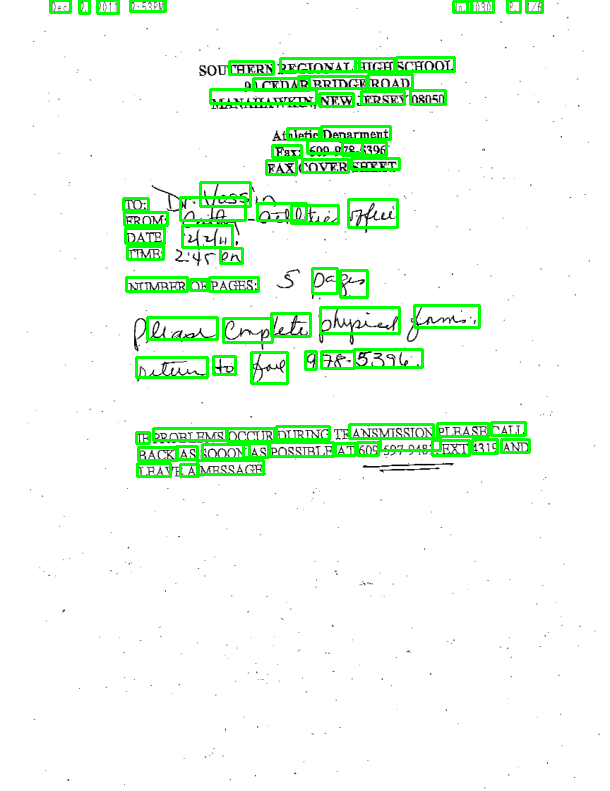 2:53PM
SOUTHERN REGIONAL HIGH SCHOOL
CEDAR BRIDGE ROAD
MANAHAWKIN, NEW JERSEY 08050
Athletic Department
Fax: 609-978-5396
FAX COVER SHEET
TO: Dr. Vassin
FROM: athletics office
DATE
TIME: 2:45 pm
NUMBER OF PAGES: 5 pages
Please complete physical forms.
return to fax 978-5396.
IF PROBLEMS OCCUR DURING TRANSMISSION PLEASE CALL
BACK AS SOOON AS POSSIBLE AT 609 597-9481 EXT 4319 AND
LEAVE A MESSAGE